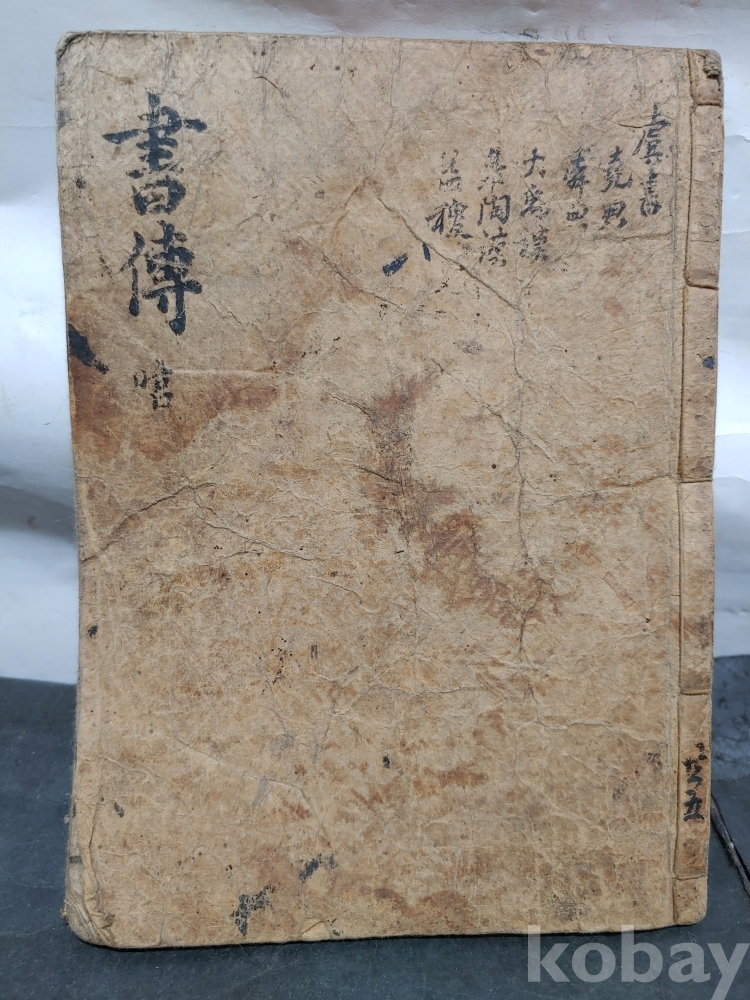 虞書
堯典
舜典
大禹謨
皐陶謨
益稷
書傳
共五
kobay